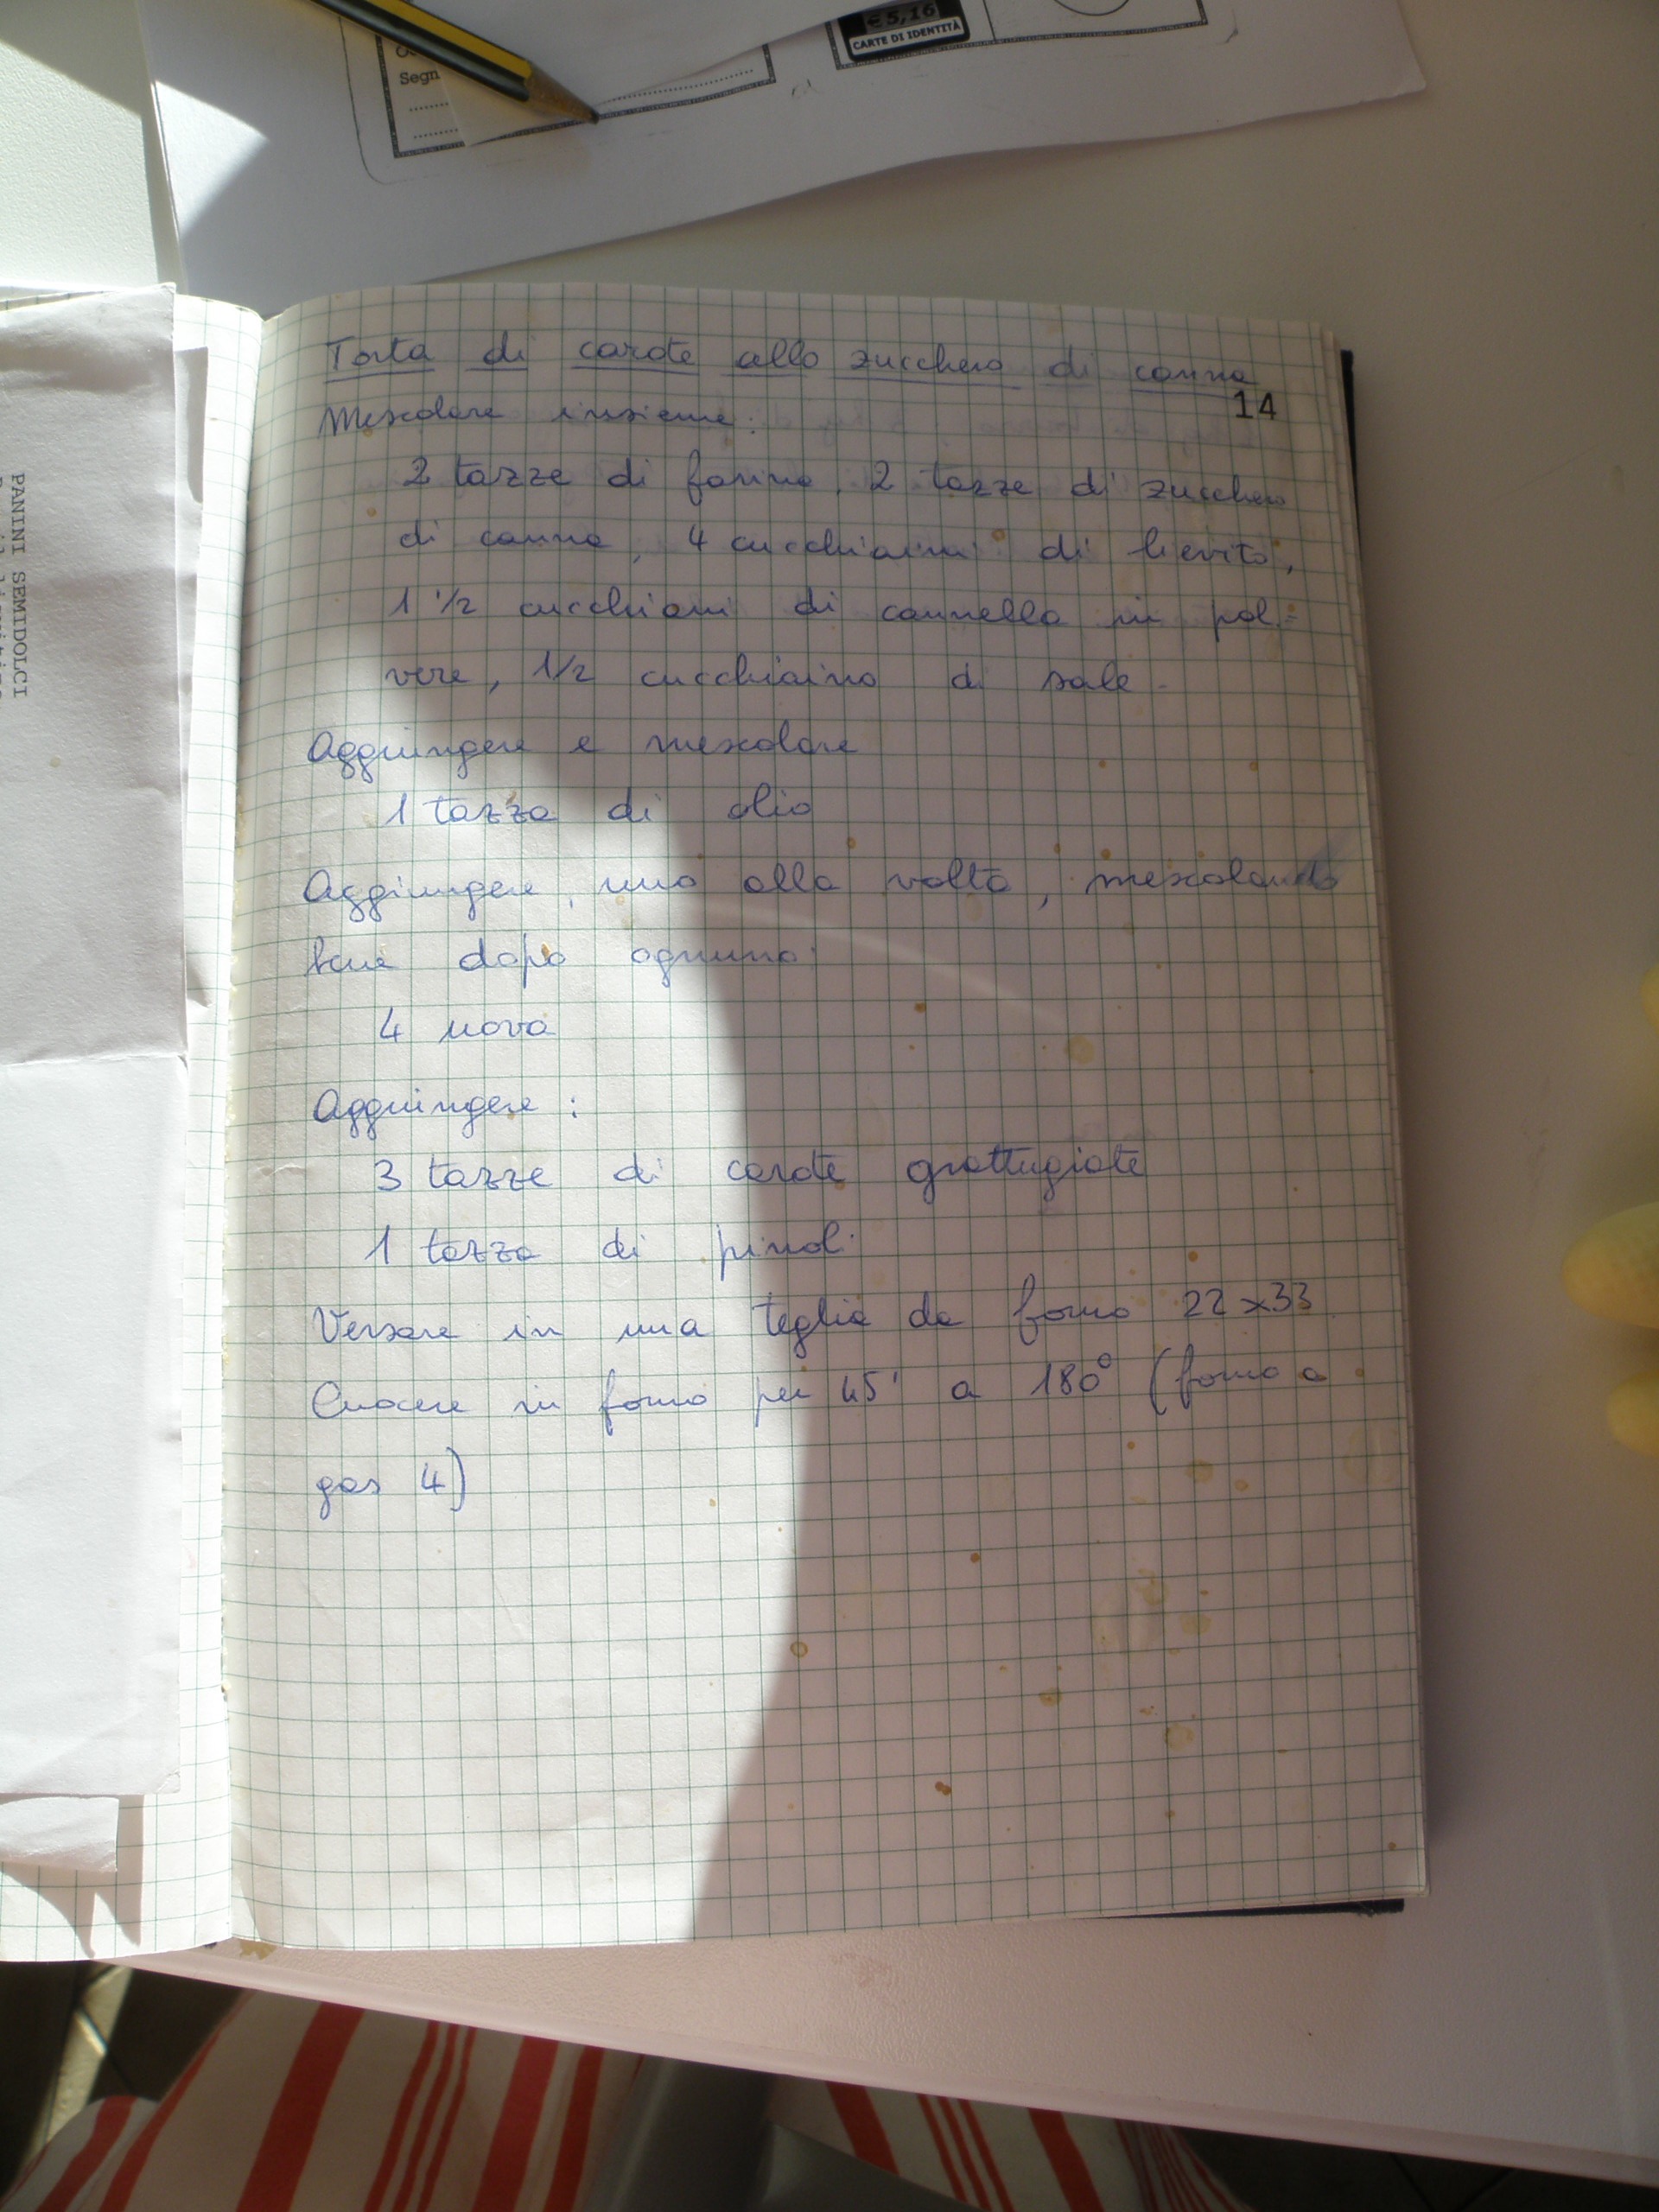 € 5,16
CARTE DI IDENTITÀ
Segn
PANINI SEMIDOLCI
Torta di carote allo zucchero di canna
14
Mescolare insieme:
2 tazze di farina, 2 tazze di zucchero
di canna, 4 cucchiaini di lievito,
1 1/2 cucchiaini di cannella in pol=
vere, 1/2 cucchiaino di sale.
Aggiungere e mescolare
1 tazza di olio
Aggiungere, uno alla volta, mescolando
bene dopo ognuno:
4 uova
Aggiungere:
3 tazze di carote grattugiate
1 tazza di pinoli
Versare in una teglia da forno 22x33.
Cuocere in forno per 45' a 180° (forno a
gas 4)